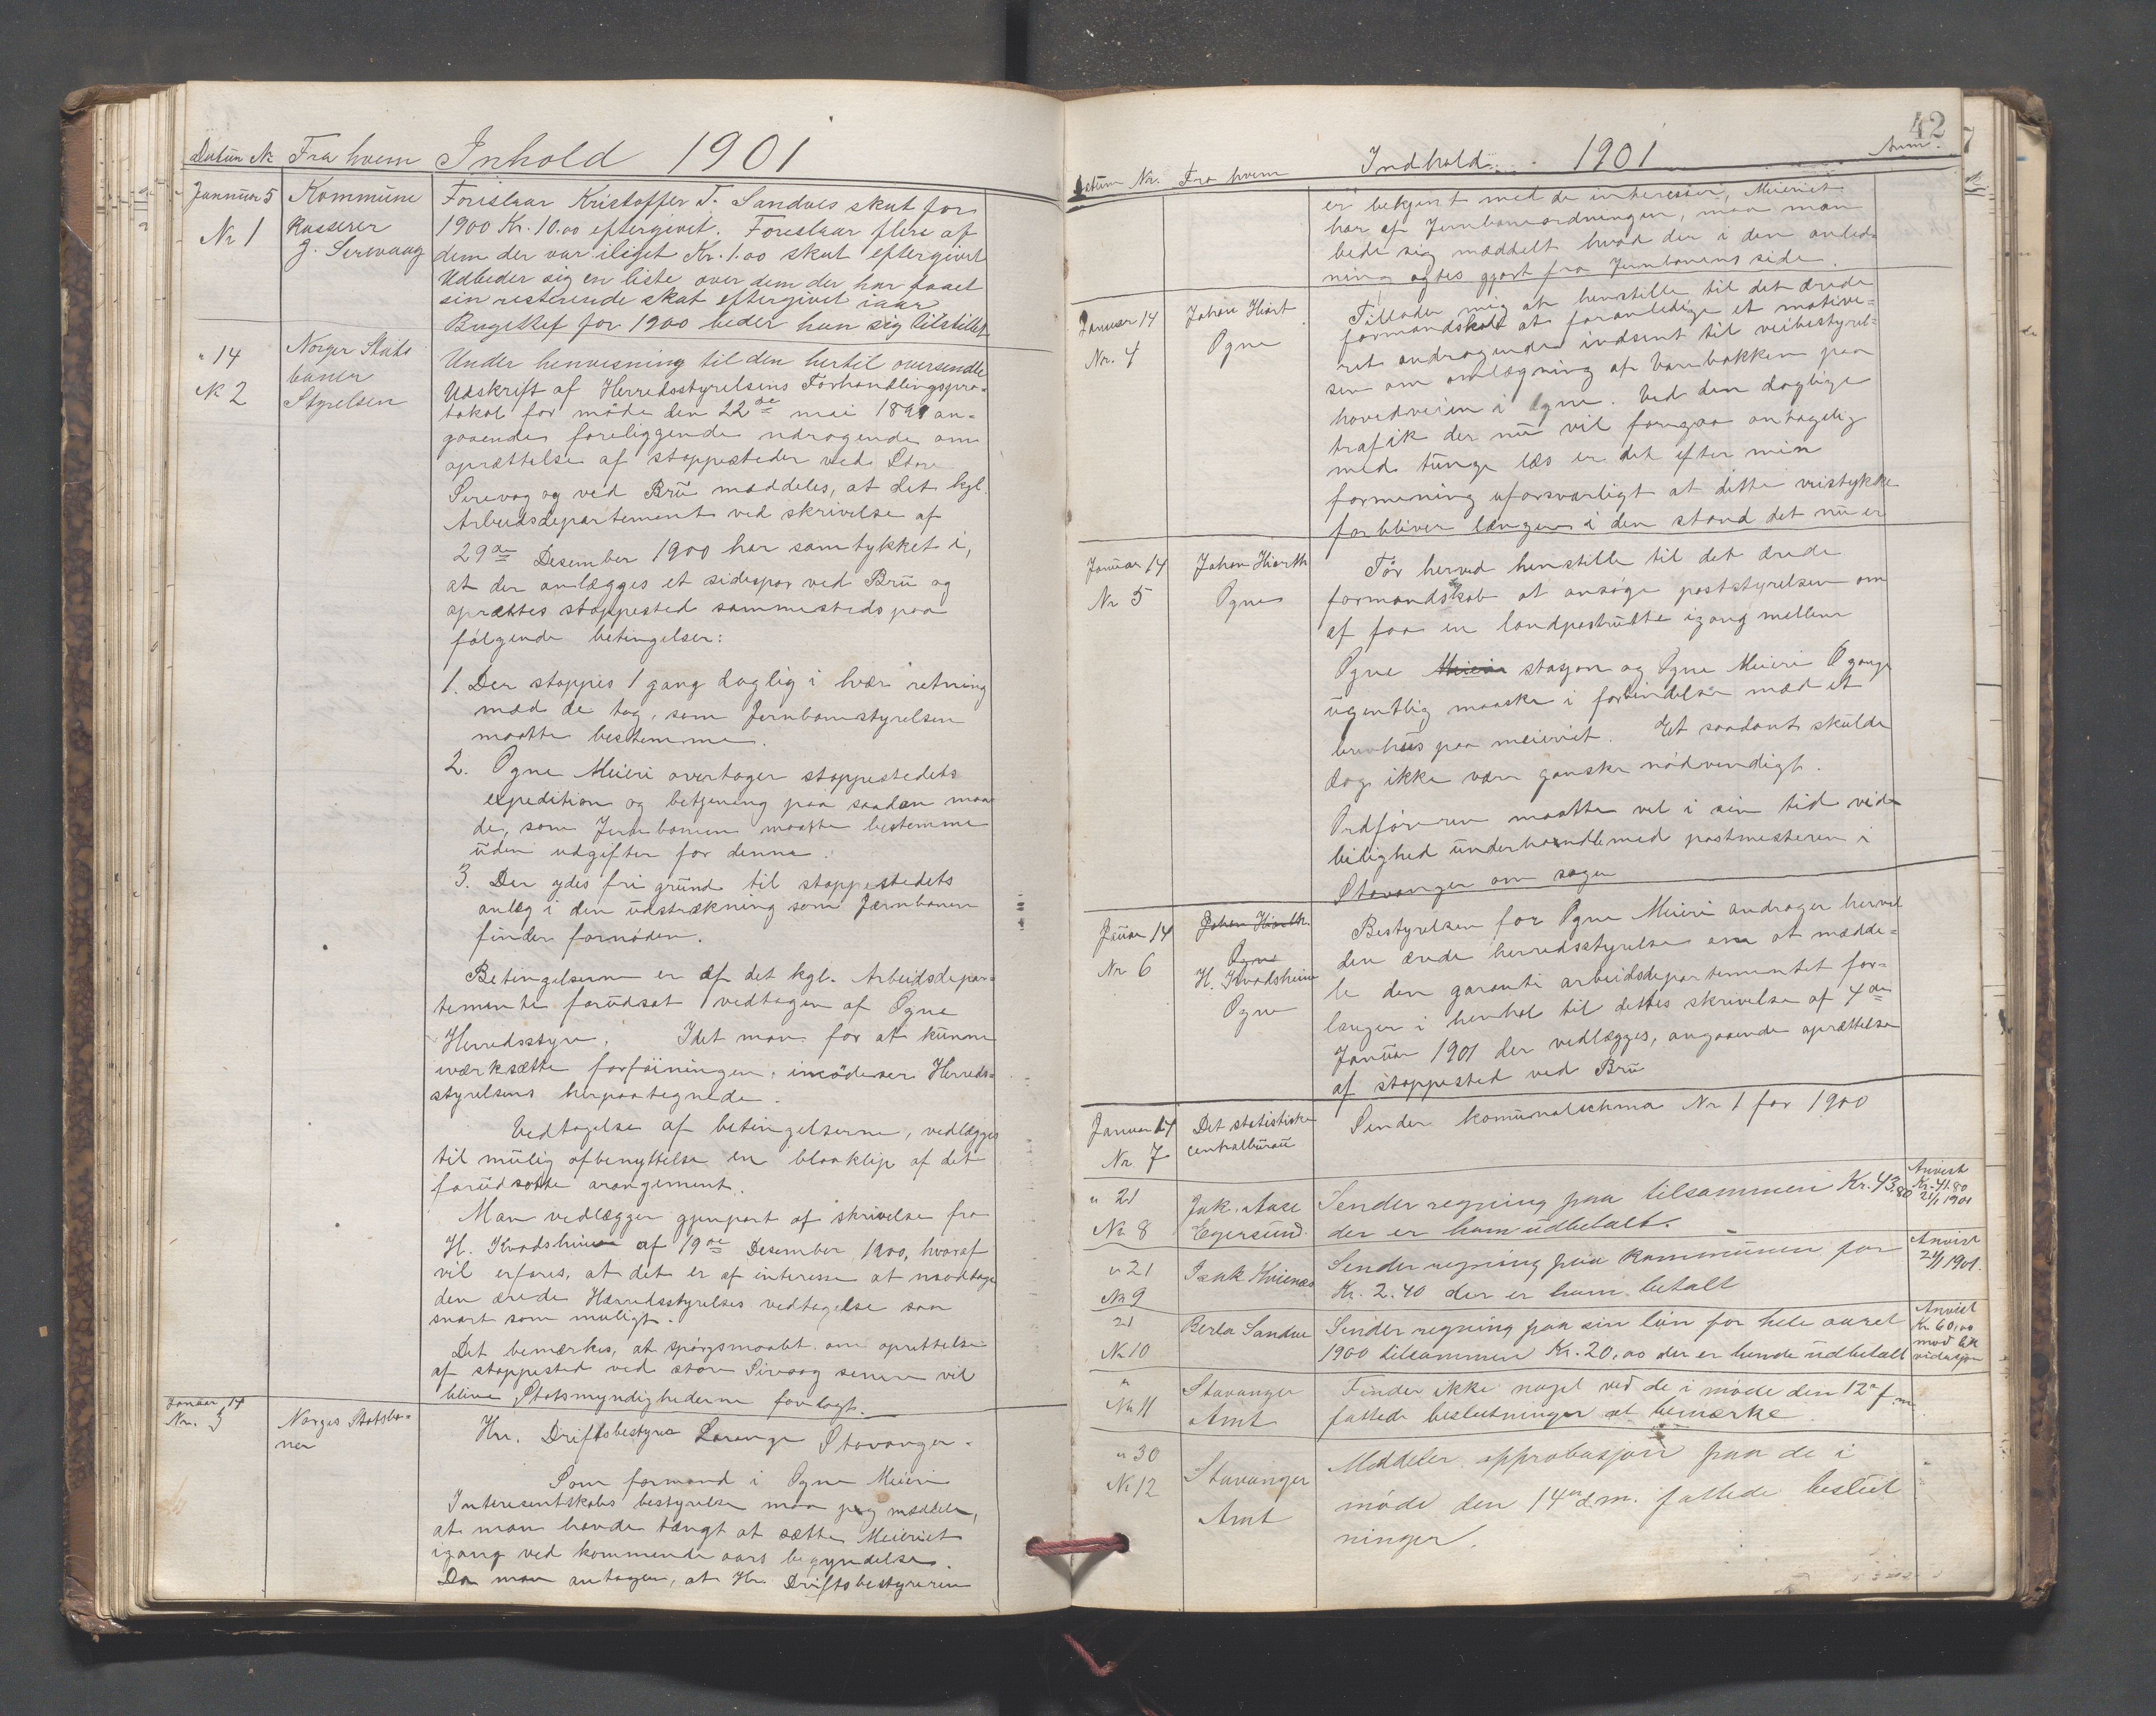 Datum No Fra hvem Inhold 1901
Januar 5 Kommune Foreslaar Kristoffer T. Sandves skat for
Nr 1 Kasserer 1900 Kr. 10.00 eftergivet. Foreslaar flere af
J. Serevaag dem der var iliget Kr. 1.00 skat eftergivet
Udbeder sig en liste over dem der har faaet
sin resterende skat eftergivet iaar
for 1900 beder han sig tilstillet
" 14 Norges Stats Under henvisning til den hertil oversendte
Nr 2 baner Udskrift af Herredsstyrelsens Forhandlingspro-
Styrelsen tokol for møde den 22de mai 1899 an-
gaaende foreliggende adragende om
oprættelse af stoppesteder ved Store
Sirevog og ved Bru meddeles, at det kgl.
Arbeidsdepartement ved skrivelse af
29de Desember 1900 har samtykket i,
at der anlægges et sidespor ved Bru og
oprættes stoppested sammesteds paa
følgende betingelser:
1. Der stoppes 1 gang daglig i hver retning
med de tog, som Jernbanestyrelsen
maatte bestemme.
2. Ogne Meieri overtager stoppestedets
expedition og betjening paa saadan maa
de, som Jernbanen maatte bestemme
uden udgifter for denne.
3. Der ydes fri grund til stoppestedets
anlæg i den udstrækning som Jærnbanen
finder fornøden.
Betingelserne er af det kgl. Arbeidsdepar-
temente forudsat vedtagen af Ogne
Herredsstyre. Idet man for at kunne
iværksætte forføiningen, imødeser Herreds-
styrelsens herpaategnede.
Vedtagelse af betingelserne, vedlægges
til mulig afbenyttelse en blaaklip af det
forudsatte arangement.
Man vedlægger gjenpart af skrivelse fra
H. Kvadsheim af 19de Desember 1900, hvoraf
vil erfares, at det er af interesse at modtage
den ærede Hærredsstyrelses vedtagelse saa
snart som muligt.
Det bemærkes, at spørgsmaalet om oprettelse
af stoppested ved store Sirvaag senere vil
blive Statsmyndighederne forelagt.
Januar 14
Nr. 3 Norges Statsba- Hr. Driftsbestyrer Lorange Stavanger.
ner
Som formand i Ogne Meieri
Interesentskabs bestyrelse maa jeg meddele,
at man havde tængt at sætte Meieriet
igang ved kommende aars begyndelse.
Da man antager, at Hr. Driftsbestyreren
42
Datum Nr. Fra hvem Indhold 1901 Anm.
er bekjent med de interesser, Meieriet
har af Jernbaneordningen, maa man
bede sig meddelt hvad der i den anled-
ning agtes gjort fra Jernbanens side.
Januar 14 Johan Hiort Tillader mig at henstille til det ærede
Nr. 4 Ogne formandskab at foranledige et motive-
ret andragende indsent til veibestyrel-
sen om omlægning af Varnbakken paa
hovedveien i Ogne. Ved den daglige
trafik der nu vil foregaa antagelig
med tunge læs er det efter min
formening uforsvarligt at dette veistykke
forbliver længer i den stand det nu er
Januar 14 Johan Hiorth Tør herved henstille til det ærede
Nr 5 Ogne formandskab at ansøge poststyrelsen om
af faa en landpostrutte igang mellem
Ogne Meieri stasjon og Ogne Meieri 6 gange
ugentlig maaske i forbindelse med et
brevhus paa meieriet. Et saadant skulde
dog ikke være ganske nødvendigt.
Ordføreren maatte vel i sin tid ved
leilighed underhandle med postmesteren i
Stavanger om sagen
Januar 14 Johan Hiorth. Bestyrelsen for Ogne Meieri andrager herved
Nr 6 Ogne den ærede herredsstyrelse om at mædde-
H. Kvadsheim le den garanti arbeidsdepartementet for-
Ogne langer i henhol til dettes skrivelse af 4de
Januar 1901 der vedlægges, angaaende oprættelse
af stoppested ved Bru
Januar 17 Det statistiske Sender komunalschema Nr 1 for 1900
Nr 7 centralbureau
" 21 Jak. Aase Sender regning paa tilsammen Kr. 43,80 Anvist Kr. 41.80 21/1 1901
Nr 8 Egersund. der er ham udbetalt.
" 21 Isak Kvienæs Sender regning paa kommunen for Anvist 24/1 1901.
Nr 9 Kr. 2.40 der er ham betalt
21 Berta Sandve Sender regning paa sin løn for hele aaret Anvist Kr 60,00
Nr 10 1900 tilsammen Kr. 20,00 der er hende udbetalt mod
" Stavanger Finder ikke noget ved de i møde den 12te f.m.
Nr 11 Amt fattede beslutninger at bemærke.
" 30 Stavanger Meddeler approbasjon paa de i
Nr 12 Amt møde den 14de d.m. fattede beslut
ninger.